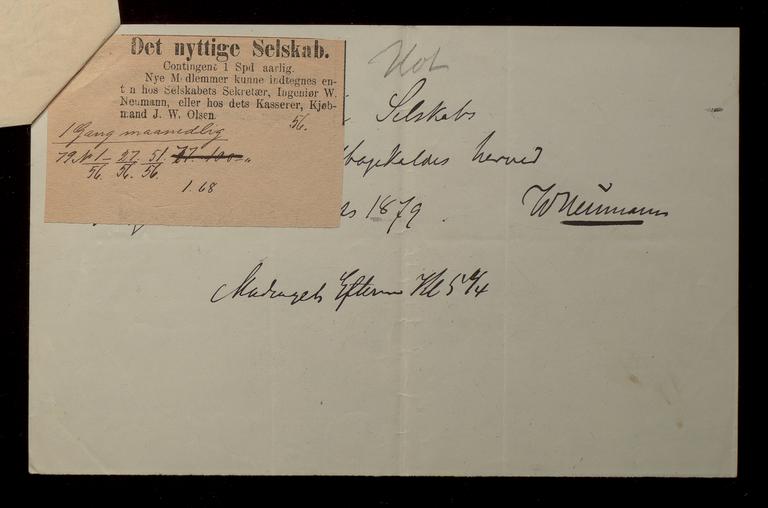 Det nyttige Selskab.
Contingent 1 Spd aarlig.
Nye Medlemmer kunne indtegnes en-
t n hos Selskabets Sekretær, Ingeniør W.
Neumann, eller hos dets Kasserer, Kjøb-
mand J. W. Olsen.
56.
1 Gang maanedlig
79 No 1 - 27. 51. 77. 100
56. 56. 56.
1.68
Selskabs
tilbagekaldes herved
1879.
WNeumann
Efterm Kl 5